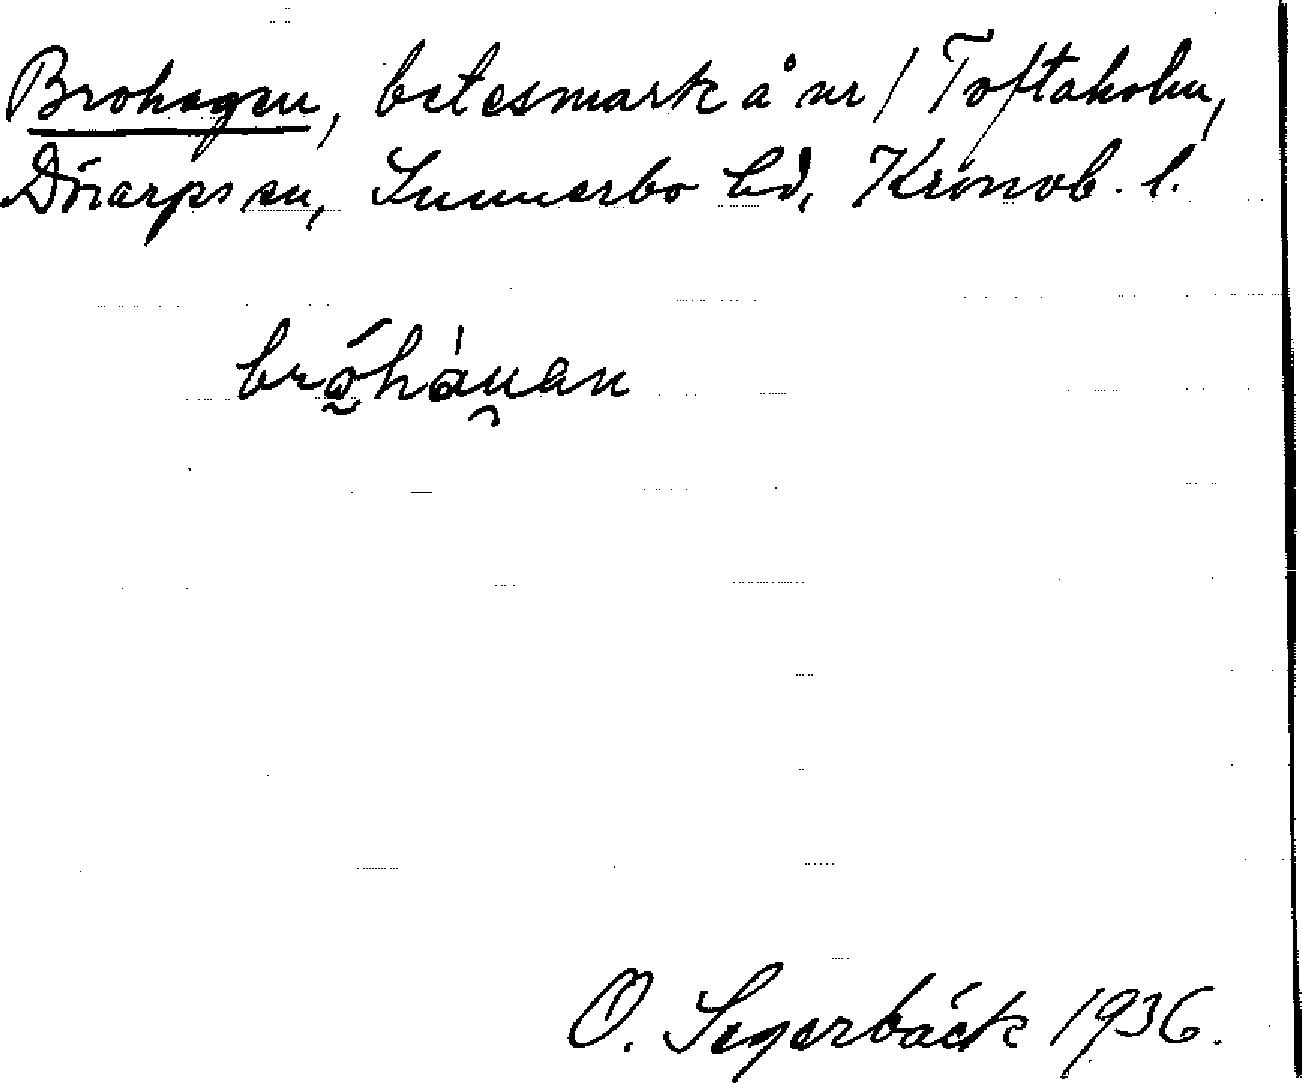 Brohagen, betesmark å nr 1 Toftaholm,
Dörarps sn, Sunnerbo hd, Kronob. l.
bróhàu̯an
O. Segerbäck 1936.